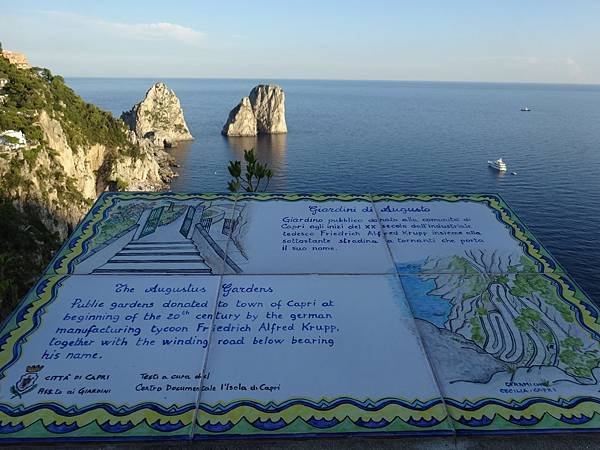 Giardini di Augusto
Giardino pubblico donato alla comunità di
Capri agli inizi del XX secolo dall'industriale
tedesco Friedrich Alfred Krupp insieme alla
sottostante stradina a tornanti che porta
il suo nome.
The Augustus Gardens
Public gardens donated to town of Capri at
beginning of the 20th century by the german
manufacturing tycoon Friedrich Alfred Krupp,
together with the winding road below bearing
his name.
CITTÀ DI CAPRI
ASS.TO ai GIARDINI
Testi a cura del
Centro Documentale l'Isola di Capri
CERAMICHE
CECILIA · CAPRI